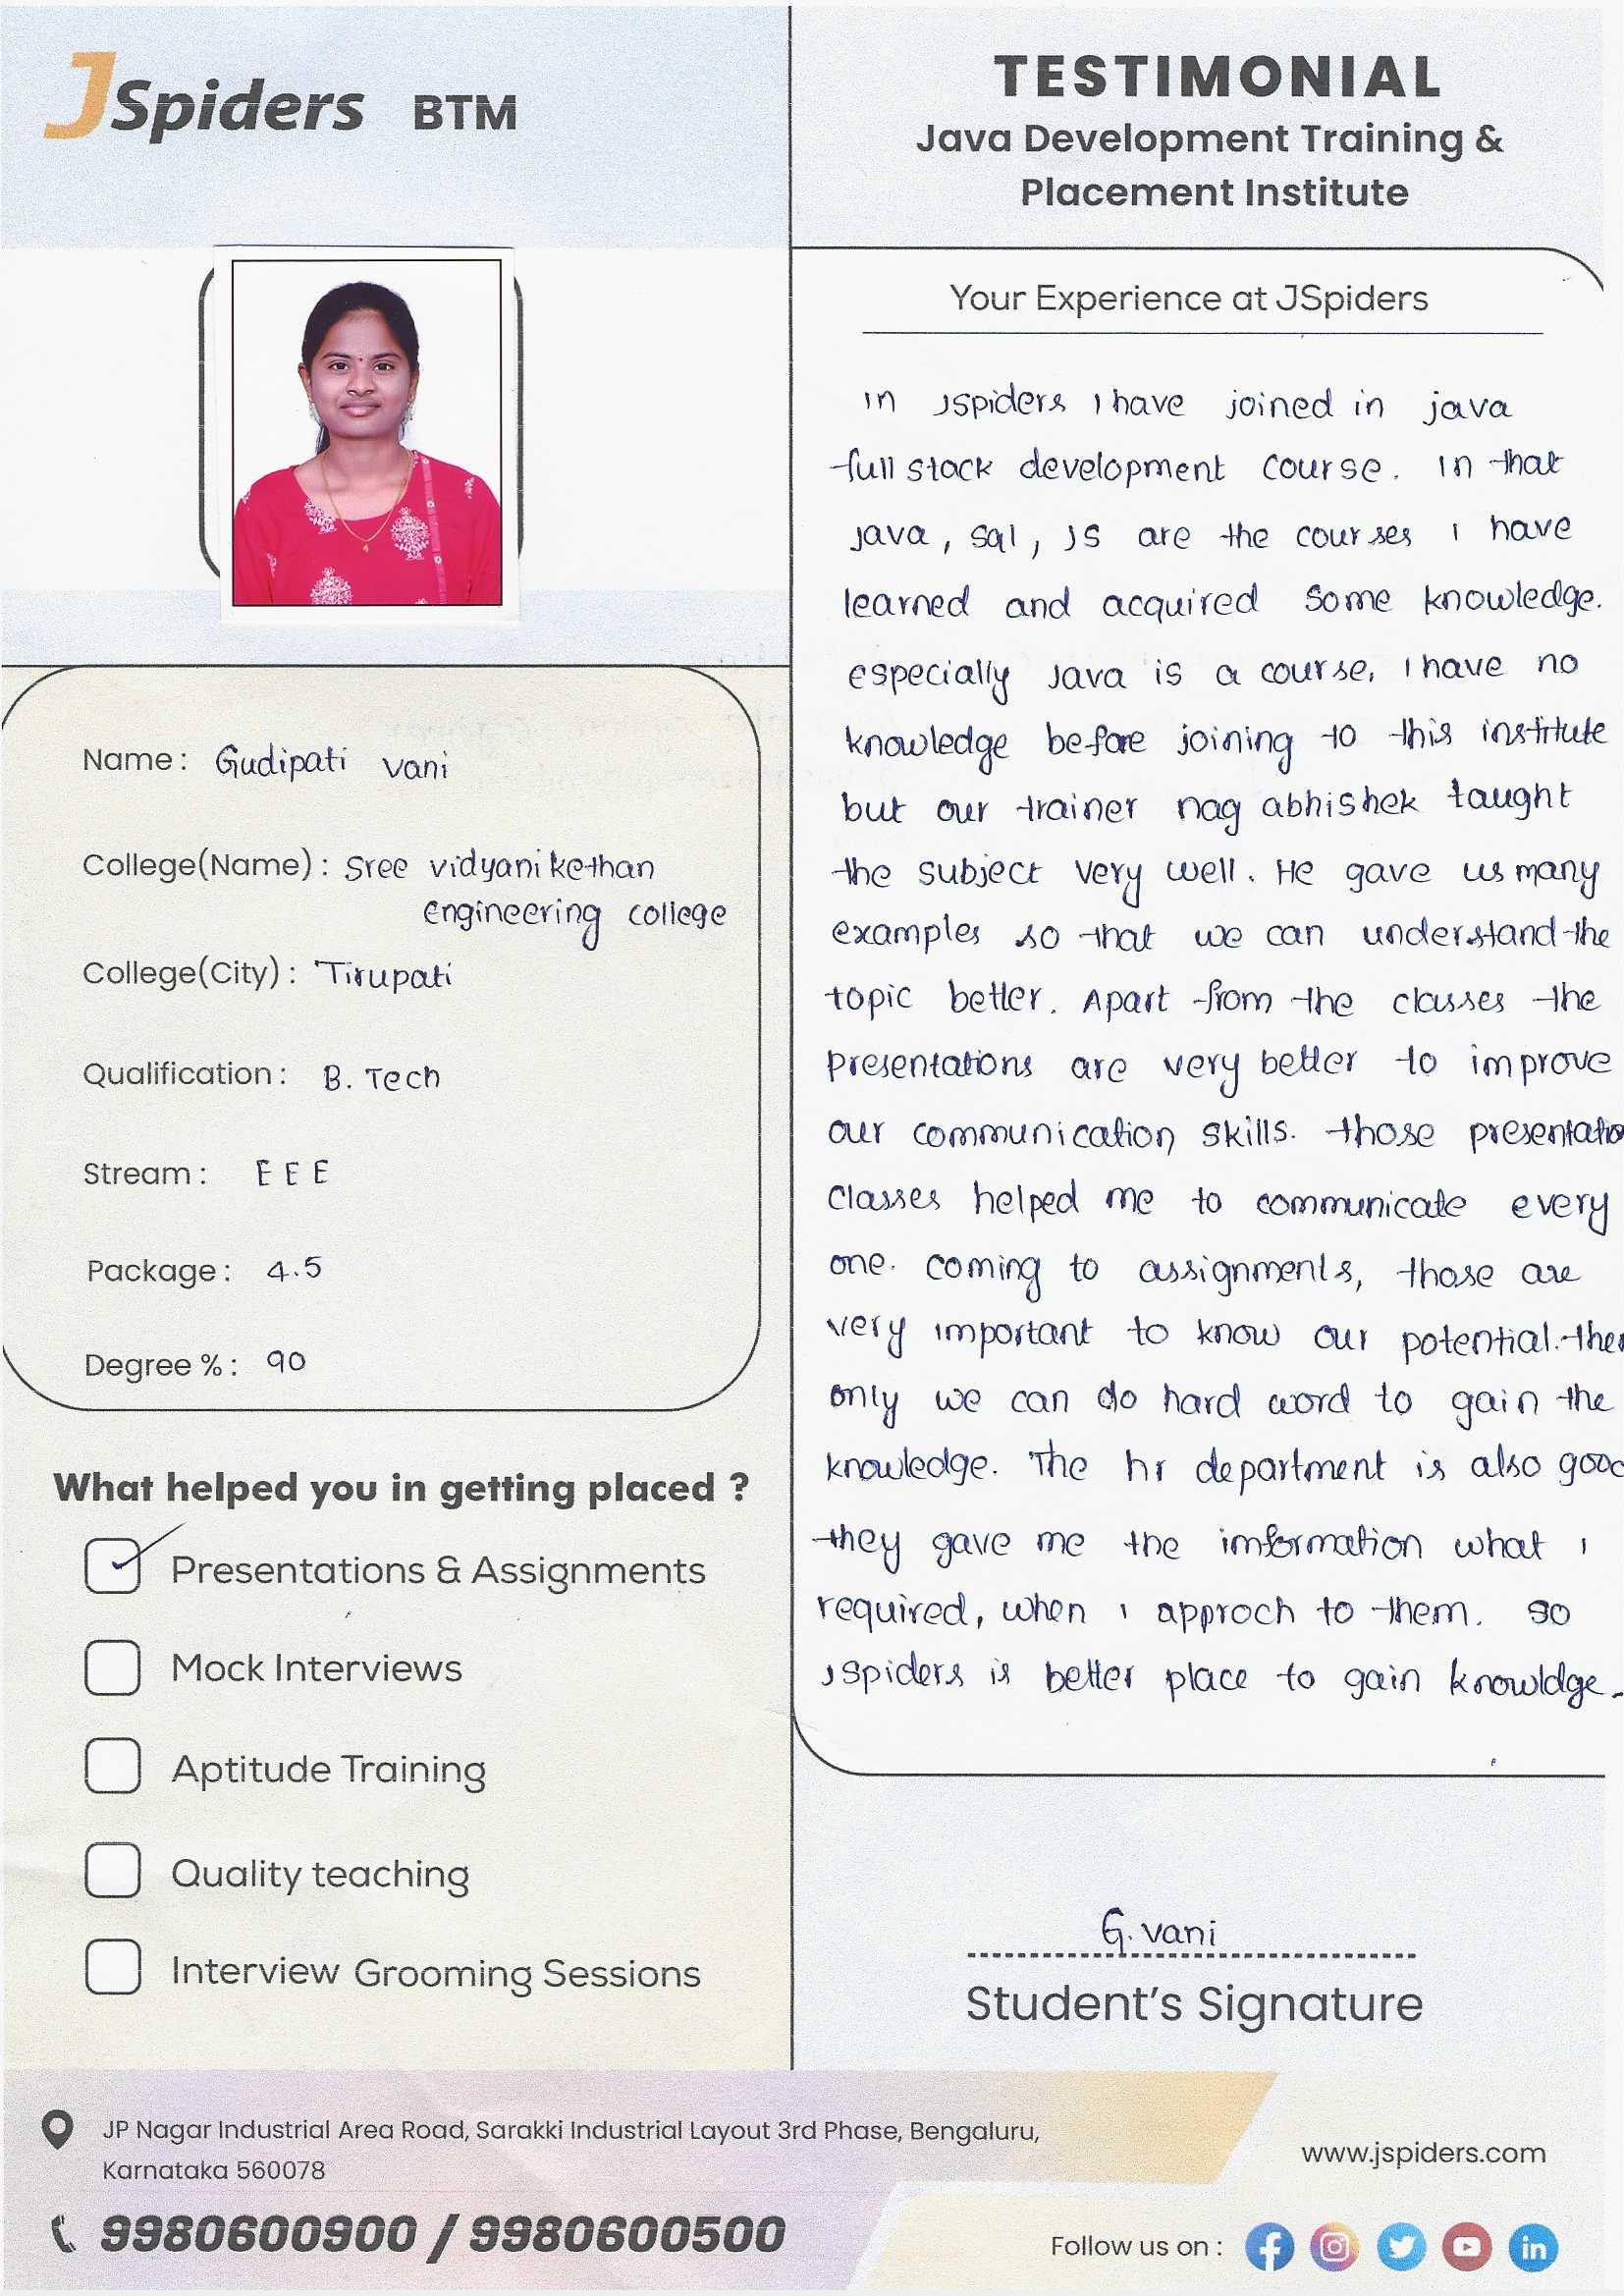 JSpiders BTM
Name: Gudipati vani
College(Name): Sree vidyanikethan
engineering college
College(City): Tirupati
Qualification: B. Tech
Stream: E E E
Package: 4.5
Degree %: 90
What helped you in getting placed ?
Presentations & Assignments
Mock Interviews
Aptitude Training
Quality teaching
Interview Grooming Sessions
TESTIMONIAL
Java Development Training &
Placement Institute
Your Experience at JSpiders
in Jspiders i have joined in java
full stack development course. in that
java, sql, JS are the courses i have
learned and acquired some knowledge.
especially Java is a course, i have no
knowledge before joining to this institute
but our trainer nag abhishek taught
the subject very well. He gave us many
examples so that we can understand the
topic better. Apart from the classes the
presentations are very better to improve
our communication skills. those presentatio
classes helped me to communicate every
one. coming to assignments, those are
very important to know our potential. then
only we can do hard word to gain the
knowledge. The hr department is also good
they gave me the imformation what i
required, when i approch to them. so
Jspiders is better place to gain knowldge.
G. vani
Student's Signature
JP Nagar Industrial Area Road, Sarakki Industrial Layout 3rd Phase, Bengaluru,
Karnataka 560078
9980600900 / 9980600500
www.jspiders.com
Follow us on :